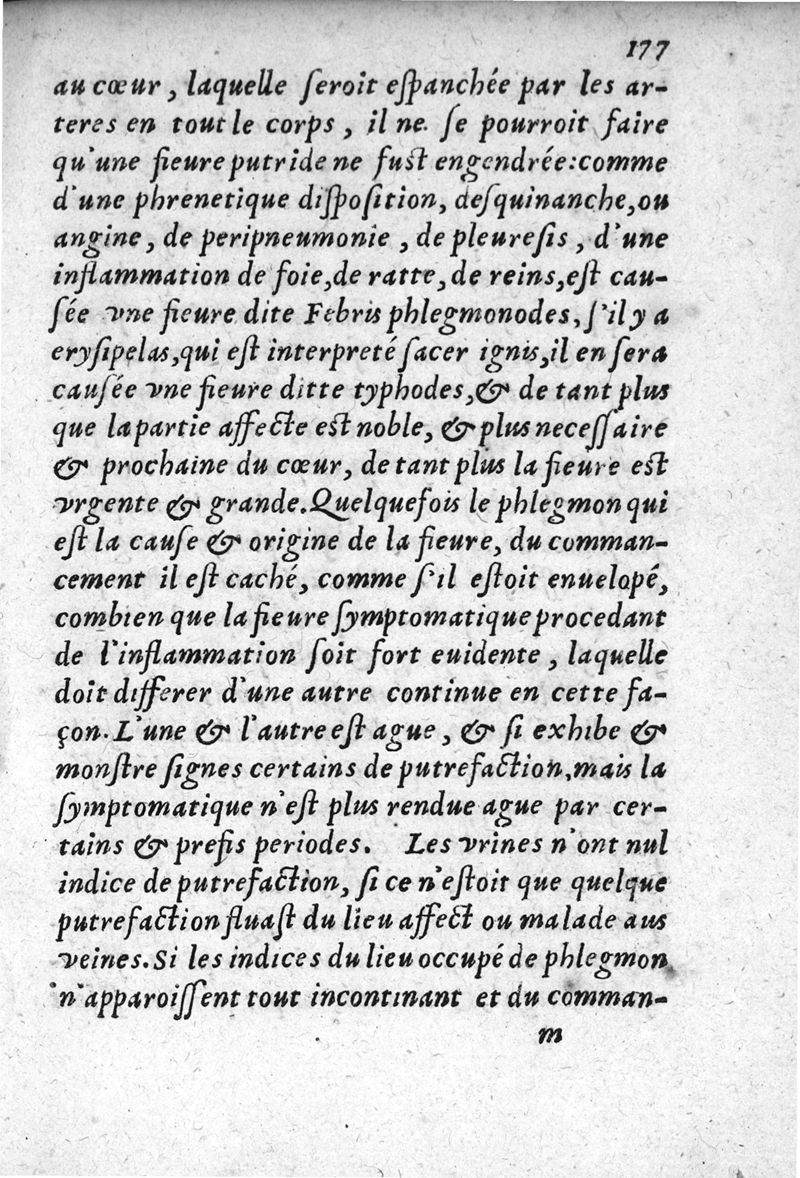 177
au cœur, laquelle ſeroit eſpanchée par les ar-
teres en tout le corps, il ne. ſe pourroit faire
qu'une fieure putride ne fuſt engendrée: comme
d'une phrenetique diſpoſition, deſquinanche, ou
angine, de peripneumonie, de pleureſis, d'une
inflammation de foie, de ratte, de reins, eſt cau-
ſée vne fieure dite Febris phlegmonodes, ſ'il y a
eryſipelas, qui eſt interpreté ſacer ignis, il en ſera
cauſée vne fieure ditte typhodes, & de tant plus
que la partie affecte eſt noble, & plus neceſſaire
& prochaine du cœur, de tant plus la fieure eſt
vrgente & grande. Quelquefois le phlegmon qui
eſt la cauſe & origine de la fieure, du comman-
cement il eſt caché, comme ſ'il eſtoit enuelopé,
combien que la fieure ſymptomatique procedant
de l'inflammation ſoit fort euidente, laquelle
doit differer d'une autre continue en cette fa-
çon. L'une & l'autre eſt ague, & ſi exhibe &
monſtre ſignes certains de putrefaction, mais la
ſymptomatique n'eſt plus rendue ague par cer-
tains & prefis periodes. Les vrines n'ont nul
indice de putrefaction, ſi ce n'eſtoit que quelque
putrefaction fluaſt du lieu affect ou malade aus
veines. Si les indices du lieu occupé de phlegmon
n'apparoiſſent tout incontinant et du comman-
m